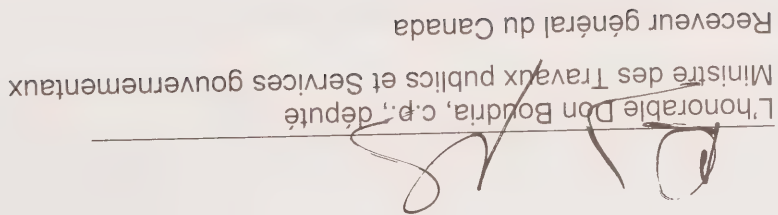 L'honorable Don Boudria, c.p., député
Ministre des Travaux publics et Services gouvernementaux
Receveur général du Canada